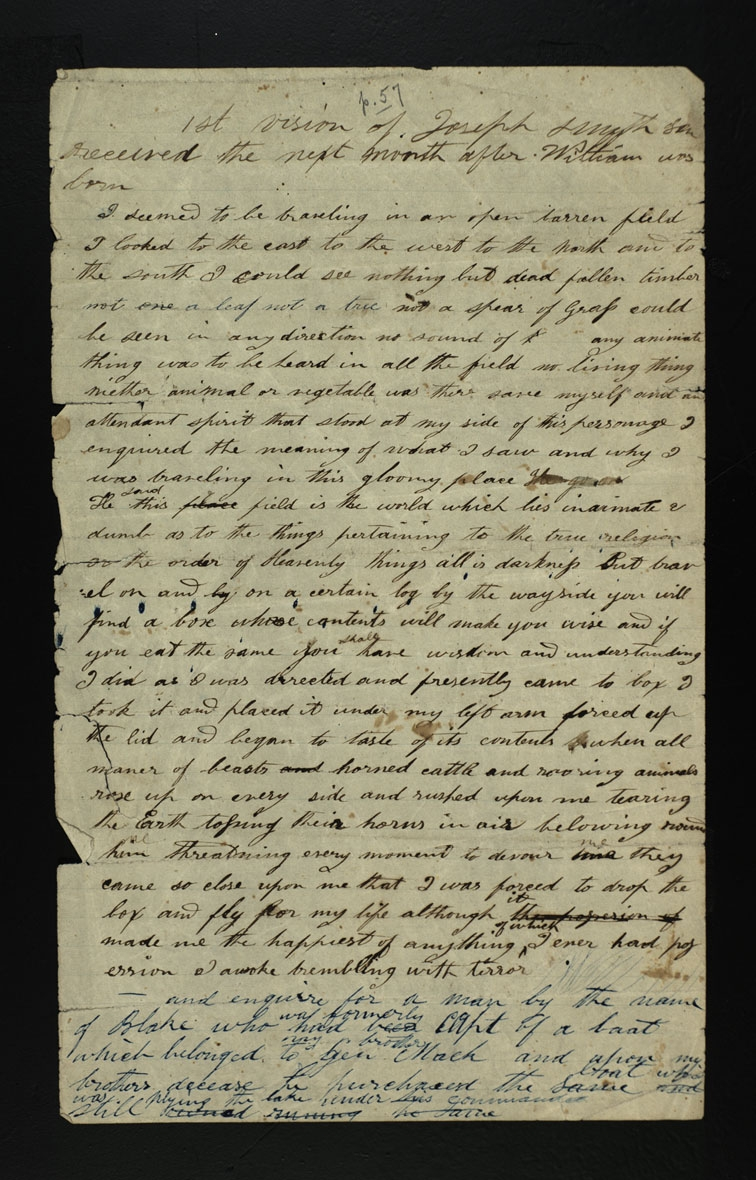 p. 57
1st vision of Joseph Smyth Sen
received the next month after William was
born
I seemed to be traveling in an open barren field
I looked to the east to the west to the North and to
the south I could see nothing but dead fallen timber
not one a leaf not a tree not a spear of Grass could
be seen in any direction no sound of any animate
thing was to be heard in all the field no living thing
niether animal or vegetable was there save myself and an
attendant spirit that stood at my side of this personage I
enquired the meaning of what I saw and why I
was traveling in this gloomy place
He said this place field is the world which lies inanimate &
dumb as to the things pertaining to the true religion
or the order of Heavenly things all is darkness But trav
-el on and by on a certain log by the wayside you will
find a box whose contents will make you wise and if
you eat the same you shall have wisdom and understanding
I did as I was directed and presently came to box I
took it and placed it under my left arm forced up
the lid and began to taste of its contents when all
maner of beasts and horned cattle and rooring animals
rose up on every side and rushed upon me tearing
the Earth tossing their horns in air belowing
him threatning every moment to devour me they
came so close upon me that I was forced to drop the
box and fly for my life although it the possession of
made me the happiest of anything of which I ever had pos
ession I awoke trembling with terror
— and enquire for a man by the name
of Blake who was formerly had been Capt of a boat
which belonged to my brother Gen Mack and upon my
brothers decease he purchaced the same boat
was plying the lake under his command
still owned runing the same